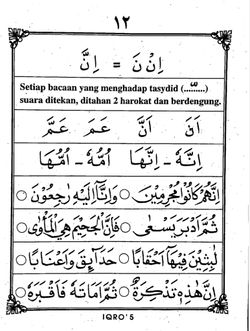 ١٢
اِنْ نَ = اِنَّ
Setiap bacaan yang menghadap tasydid (........)
suara ditekan, ditahan 2 harokat dan berdengung.
اَنَ اَنَّ عَمَ عَمَّ
اِنَّهٗ - اِنَّهَا اُمُّهٗ - اُمُّهَا
اِنَّهُمْ كَانُوْا مُجْرِمِيْنَ ○ وَاِنَّآ اِلَيْهِ رٰجِعُوْنَ ○
ثُمَّ اَدْبَرَ يَسْعٰى ○ فَاِنَّ الْجَحِيْمَ هِيَ الْمَأْوٰى ○
لٰبِثِيْنَ فِيْهَآ اَحْقَابًا ○ حَدَآئِقَ وَاَعْنَابًا ○
اِنَّ هٰذِهٖ تَذْكِرَةٌ ○ ثُمَّ اَمَاتَهٗ فَاَقْبَرَهٗ ○
IQRO'5